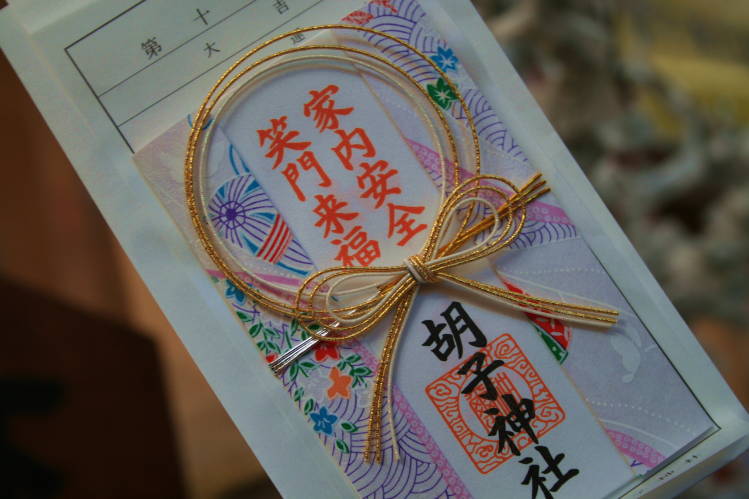 第十
大吉
家内安全
笑門来福
胡子神社